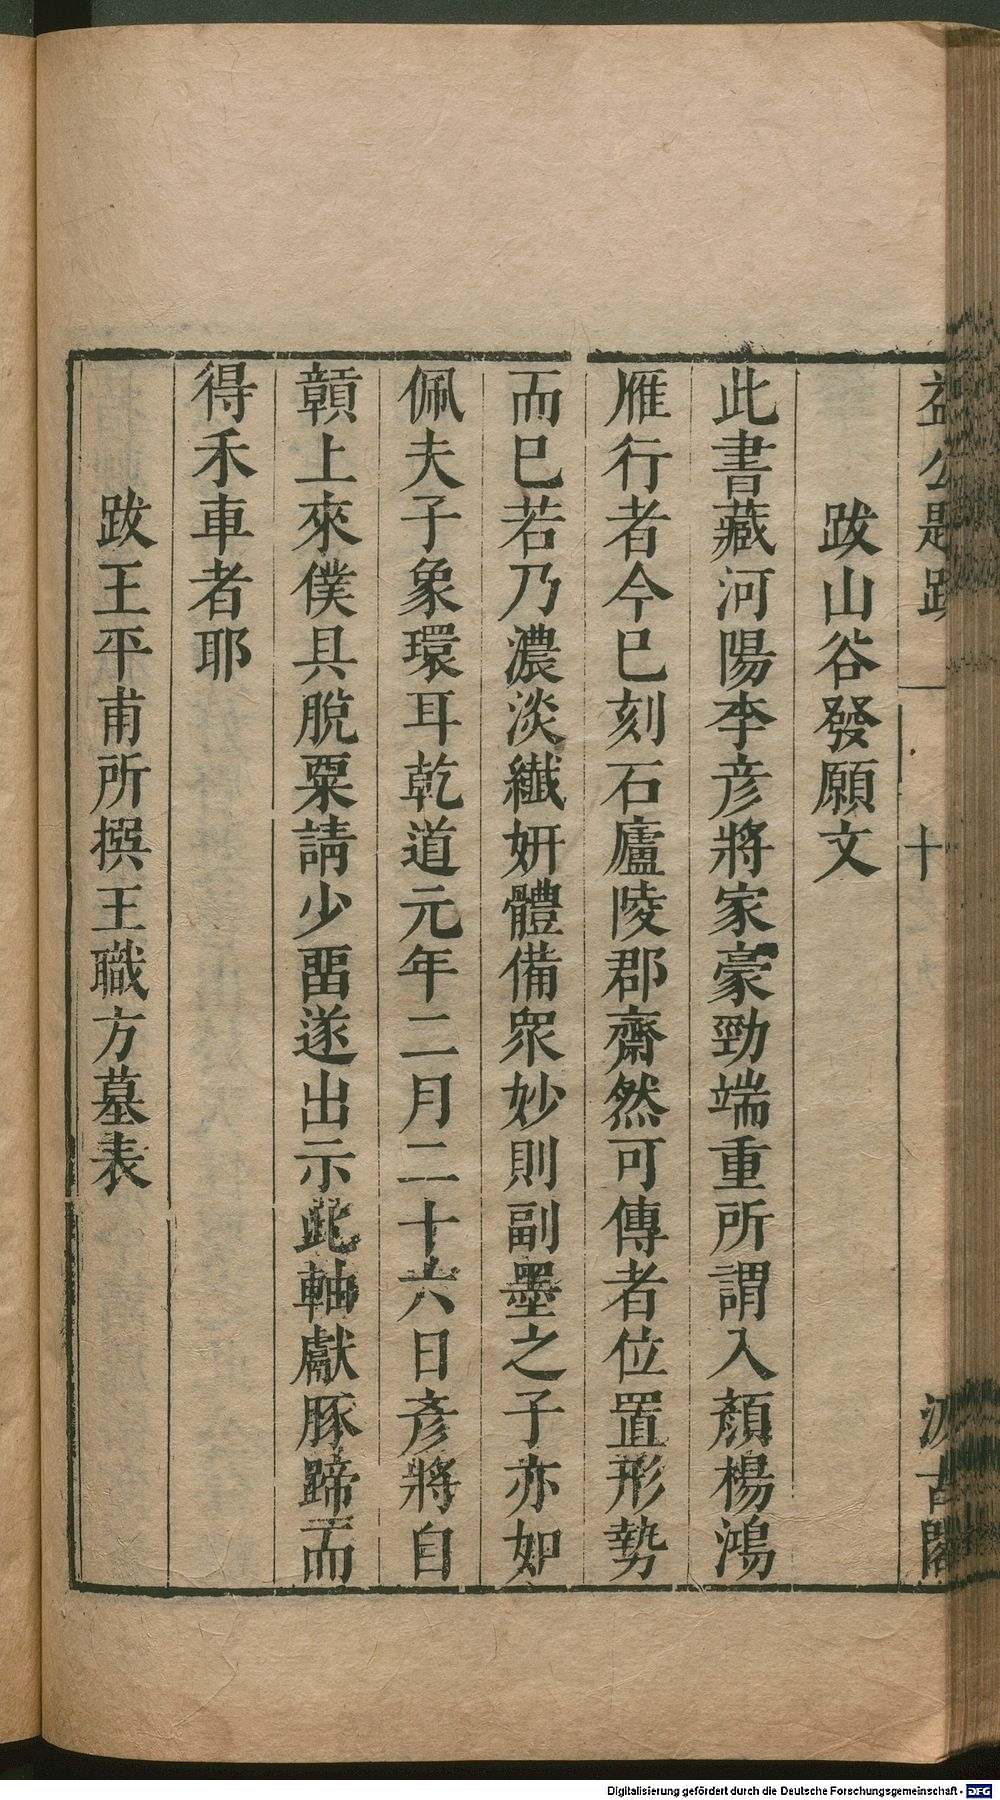 益公題跋 一 十 汲古閣
跋山谷發願文
此書藏河陽李彥將家豪勁端重所謂入顏楊鴻
雁行者今巳刻石廬陵郡齋然可傳者位置形勢
而巳若乃濃淡纖妍體備眾妙則副墨之子亦如
佩夫子象環耳乾道元年二月二十六日彥將自
贑上來僕具脫粟請少畱遂出示此軸獻豚蹄而
得禾車者耶
跋王平甫所撰王職方墓表
Digitalisierung gefördert durch die Deutsche Forschungsgemeinschaft - DFG